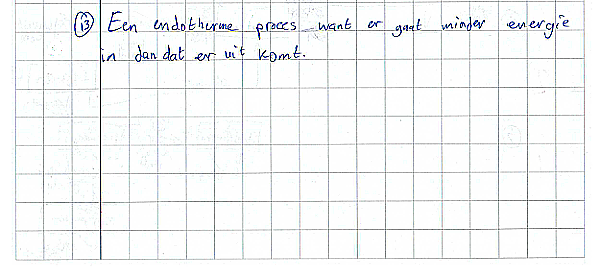 13 Een endotherme proces want er gaat minder energie
in dan dat er uit komt.